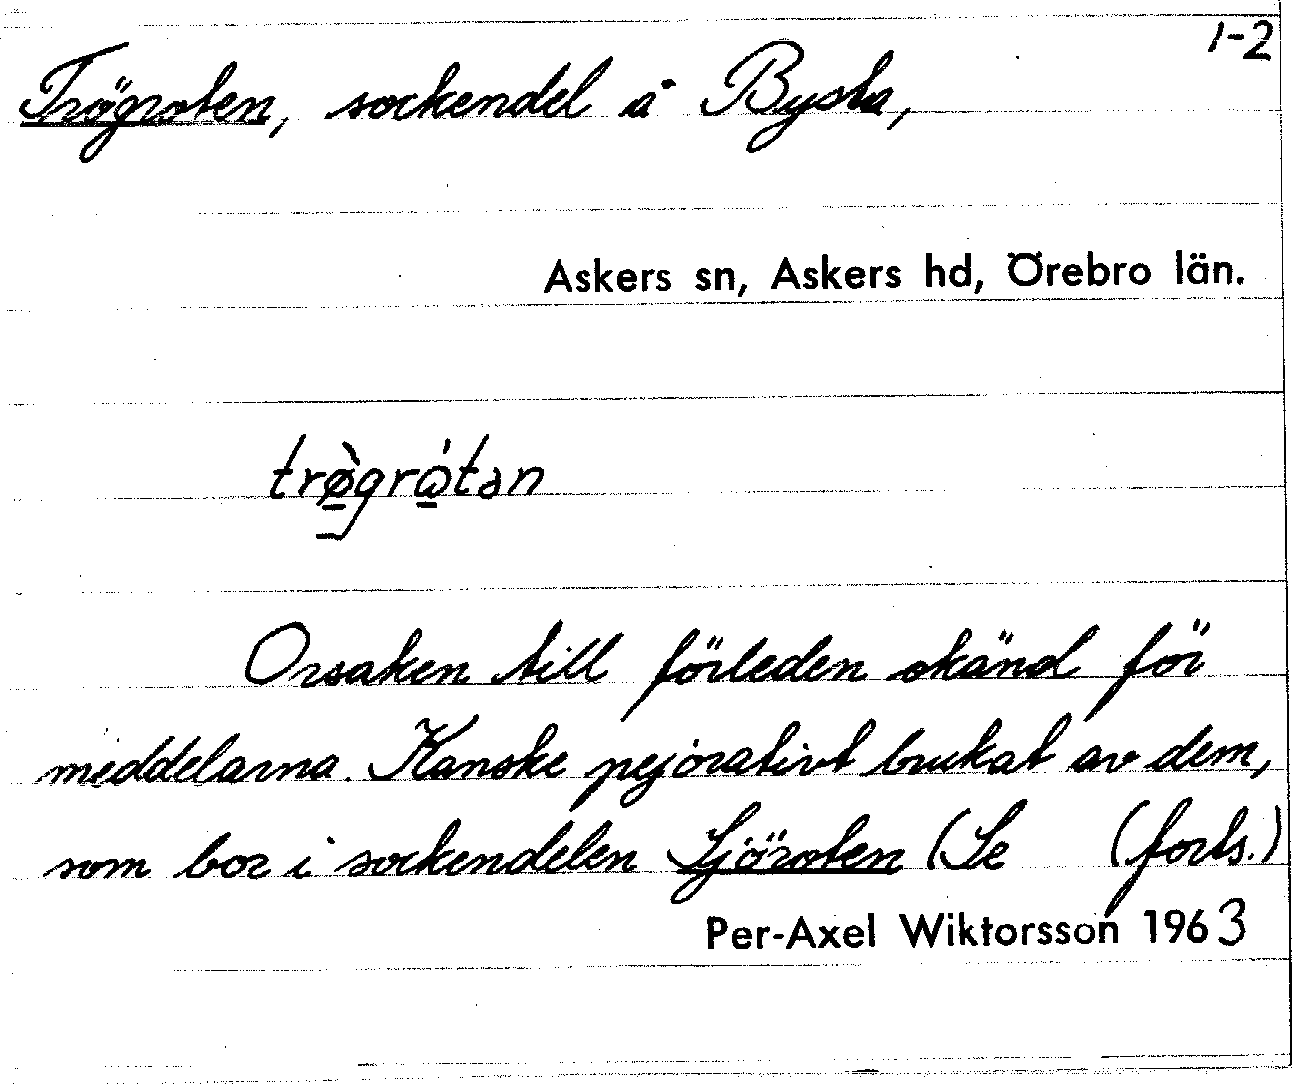 1-2
Trögroten, sockendel å Bysta,
Askers sn, Askers hd, Örebro län.
trø̀grώtən
Orsaken till förleden okänd för
meddelarna. Kanske pejorativt brukat av dem,
som bor i sockendelen Sjöroten (Se (forts.)
Per-Axel Wiktorsson 1963